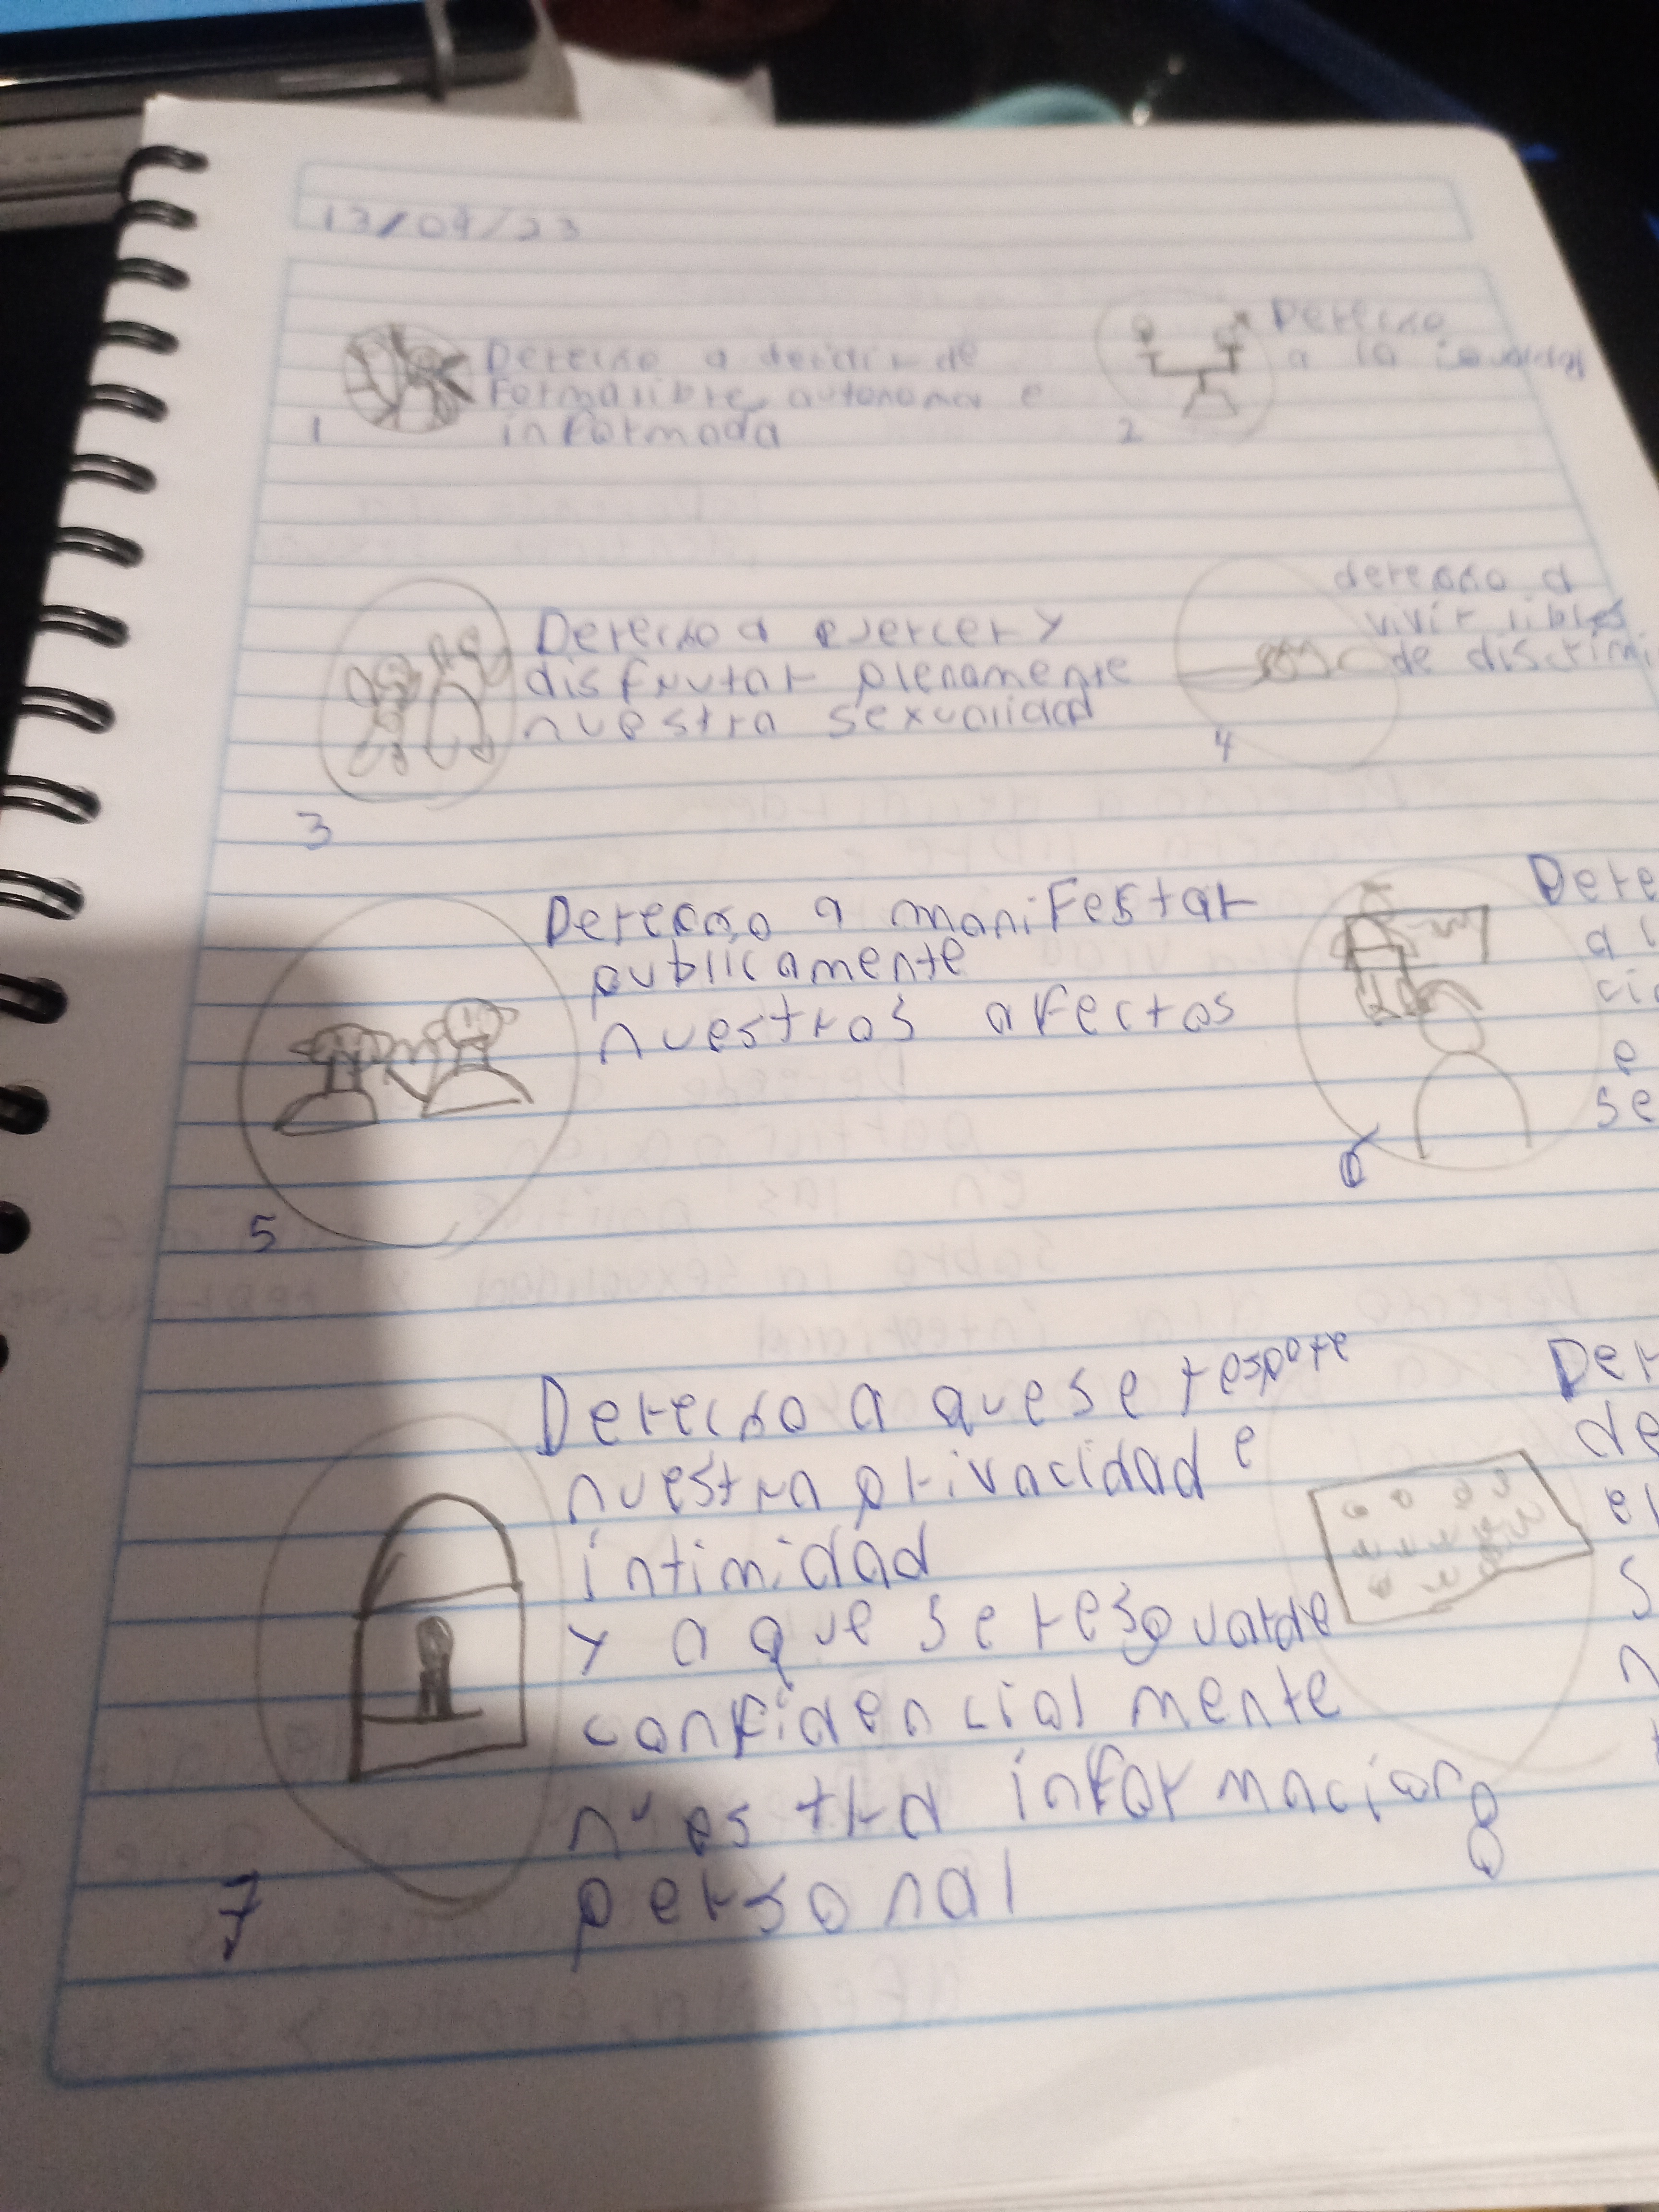 13/09/23
1
Derecho a decidir de
forma libre, autonoma e
informada
2
Derecho
a la igualdad
3
Derecho a ejercer y
disfrutar plenamente
nuestra sexualidad
4
derecho a
vivir libles
de discrimi
5
Derecho a manifestar
publicamente
nuestros afectos
6
Dere
a l
cio
e
se
7
Derecho a que se respete
nuestra privacidad e
intimidad
y a que se resguarde
confidencial mente
nuestra informacion
personal
8
Der
de
el
s
n